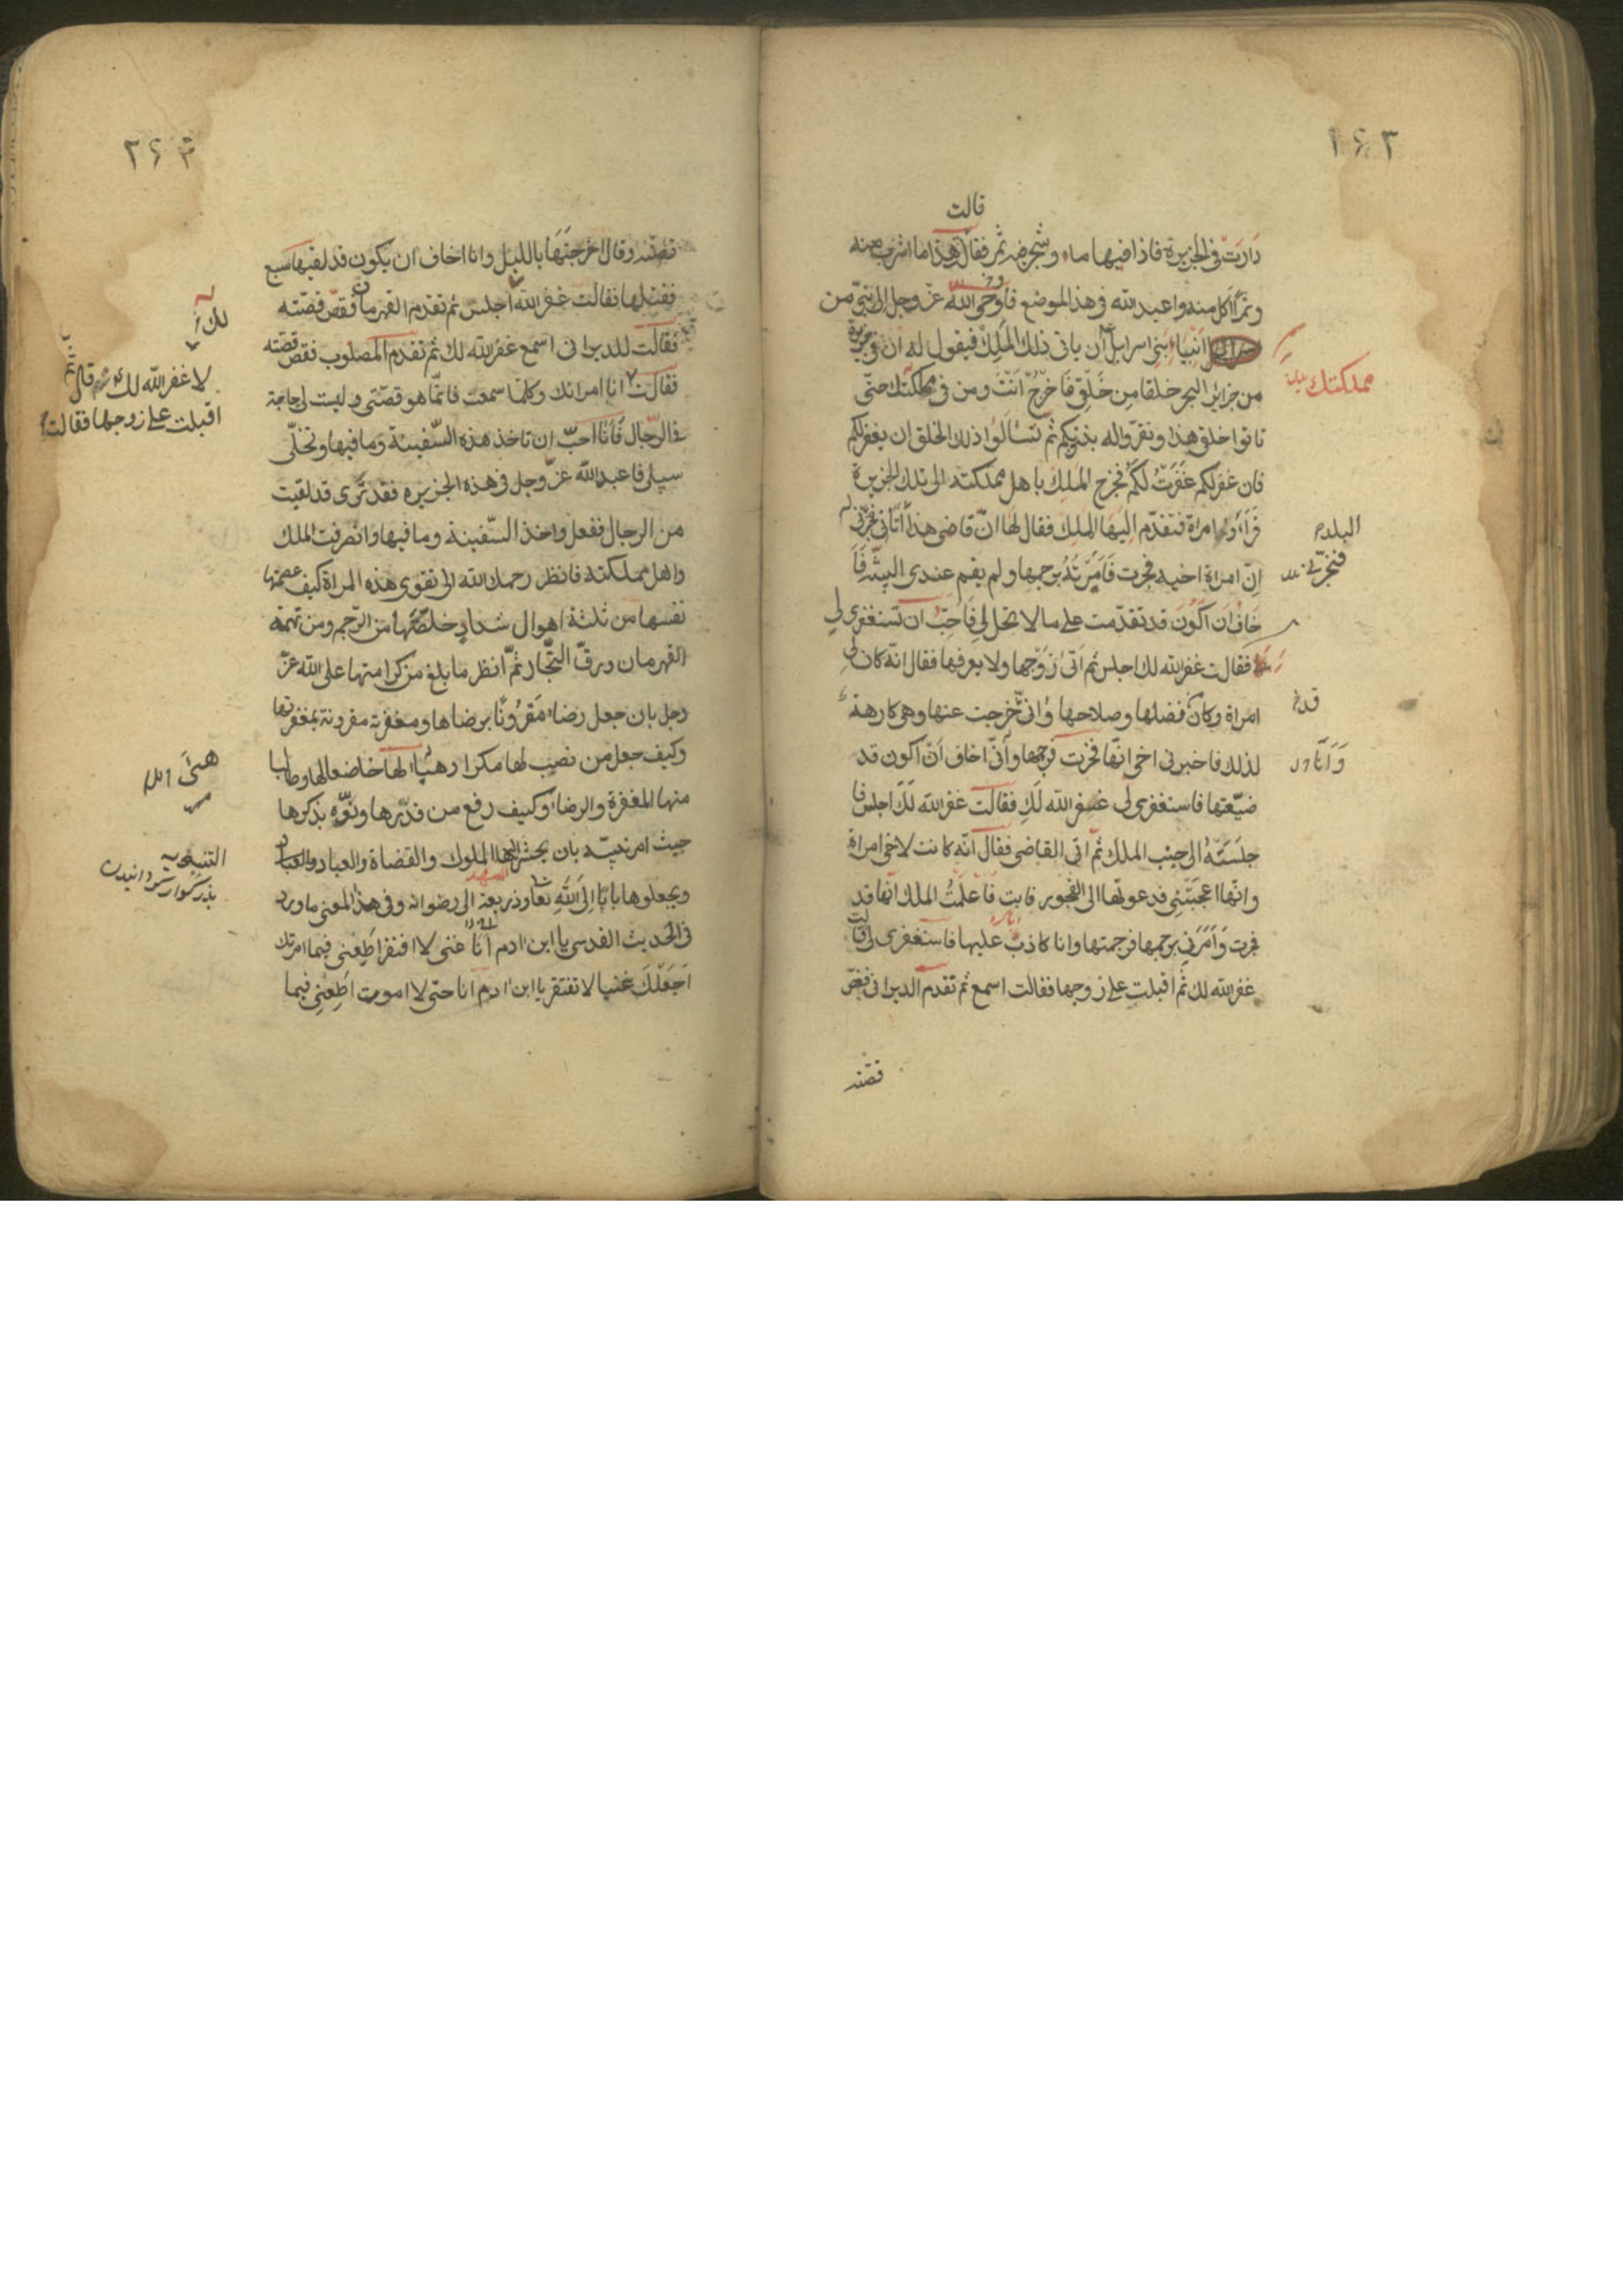 ١٦٣
قالت
دارت فى الجزيرة فاذا فيها ماء وشجر فيه ثمر فقال هذا ما اشرب منه
وثمر آكل منه واعبد الله فى هذا الموضع فاوحى الله عز وجل الى نبى من
انبياء بنى اسرايل ان ياتى ذلك الملك فيقول له ان فى جزيرة
من جزاير البحر خلقا من خلقى فاخرج انت ومن فى مملكتك حتى
مملكتك
تاتوا خلقى هذا وتقروا له بذنوبكم ثم تسالوا ذلك الخلق ان يغفر لكم
فان غفر لكم غفرت لكم فخرج الملك باهل مملكته الى تلك الجزيرة
فراوا امراة فتقدم اليها الملك فقال لها ان قاضى هذا اتانى فخبرنى
البلد
ان امراة اخيه فجرت فامرته برجمها ولم يقم عندى البينة فا
خاف ان اكون قد تقدمت على ما لا يحل لى فاحب ان تستغفرى لى
فقالت غفر الله لك اجلس ثم اتى زوجها ولا يعرفها فقال انه كان لى
امراة وكان فضلها وصلاحها وانى خرجت عنها وهى كارهة
لذلك فاخبرنى اخى انها فجرت فرجمها وانى اخاف ان اكون قد
ضيعتها فاستغفرى لى غفر الله لك فقالت غفر الله لك اجلس فا
جلسته الى جنب الملك ثم اتى القاضى فقال انه كانت لاخى امراة
وانها اعجبتنى فدعوتها الى الفجور فابت فاعلمت الملك انها قد
فجرت وامرنى برجمها فرجمتها وانا كاذب عليها فاستغفرى لى قالت
غفر الله لك ثم اقبلت على زوجها فقالت اسمع ثم تقدم الديرانى فقص
قصته
قصته وقال اخرجتها بالليل وانا اخاف ان يكون قد لقيها سبع
فقتلها فقالت غفر الله اجلس ثم تقدم القهرمان فقص قصته
لك
فقالت للديرانى اسمع غفر الله لك ثم تقدم المصلوب فقص قصته
لا غفر الله لك قال ثم
اقبلت على زوجها فقالت
فقالت انا امراتك وكلما سمعت فانما هو قصتى وليست لى حاجة
فى الرجال فانا احب ان تاخذ هذه السفينة وما فيها وتخلى
سبيلى فاعبد الله عز وجل فى هذه الجزيره فقد ترى قد لقيت
من الرجال ففعل واخذ السفينة وما فيها وانصرفت الملك
واهل مملكته فانظر رحمك الله الى تقوى هذه المراة كيف عصمتها
نفسها من ثلثة اهوال شداد خلصتها من الرجم ومن تهمة
القهرمان ورق التجار ثم انظر ما بلغ من كرامتها على الله عز
وجل بان جعل رضاه مقرونا برضاها ومغفرته مقرونة بمغفرتها
وكيف جعل من نصب لها مكرا لها خاضعا لها وطالبا
منها المغفرة والرضا وكيف رفع من قدرها ونوه بذكرها
حيث امر نبيه بان يحشر اليها الملوك والقضاة والعباد والعباد
ويجعلوها بابا الى الله تعا وذريعة الى رضوانه وفى هذا المعنى ما ورد
فى الحديث القدسى يا ابن ادم انا غنى لا افتقر اطعنى فيما امرتك
اجعلك غنيا لا تفتقر يا ابن ادم انا حى لا اموت اطعنى فيما